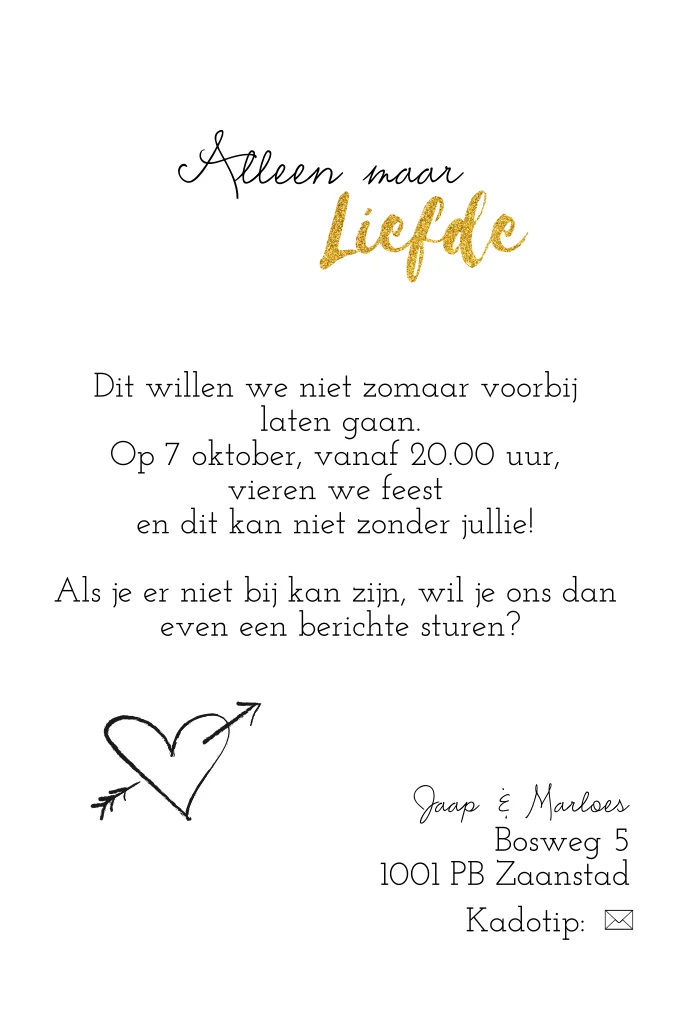 Alleen maar
Liefde
Dit willen we niet zomaar voorbij
laten gaan.
Op 7 oktober, vanaf 20.00 uur,
vieren we feest
en dit kan niet zonder jullie!
Als je er niet bij kan zijn, wil je ons dan
even een berichte sturen?
Jaap & Marloes
Bosweg 5
1001 PB Zaanstad
Kadotip: